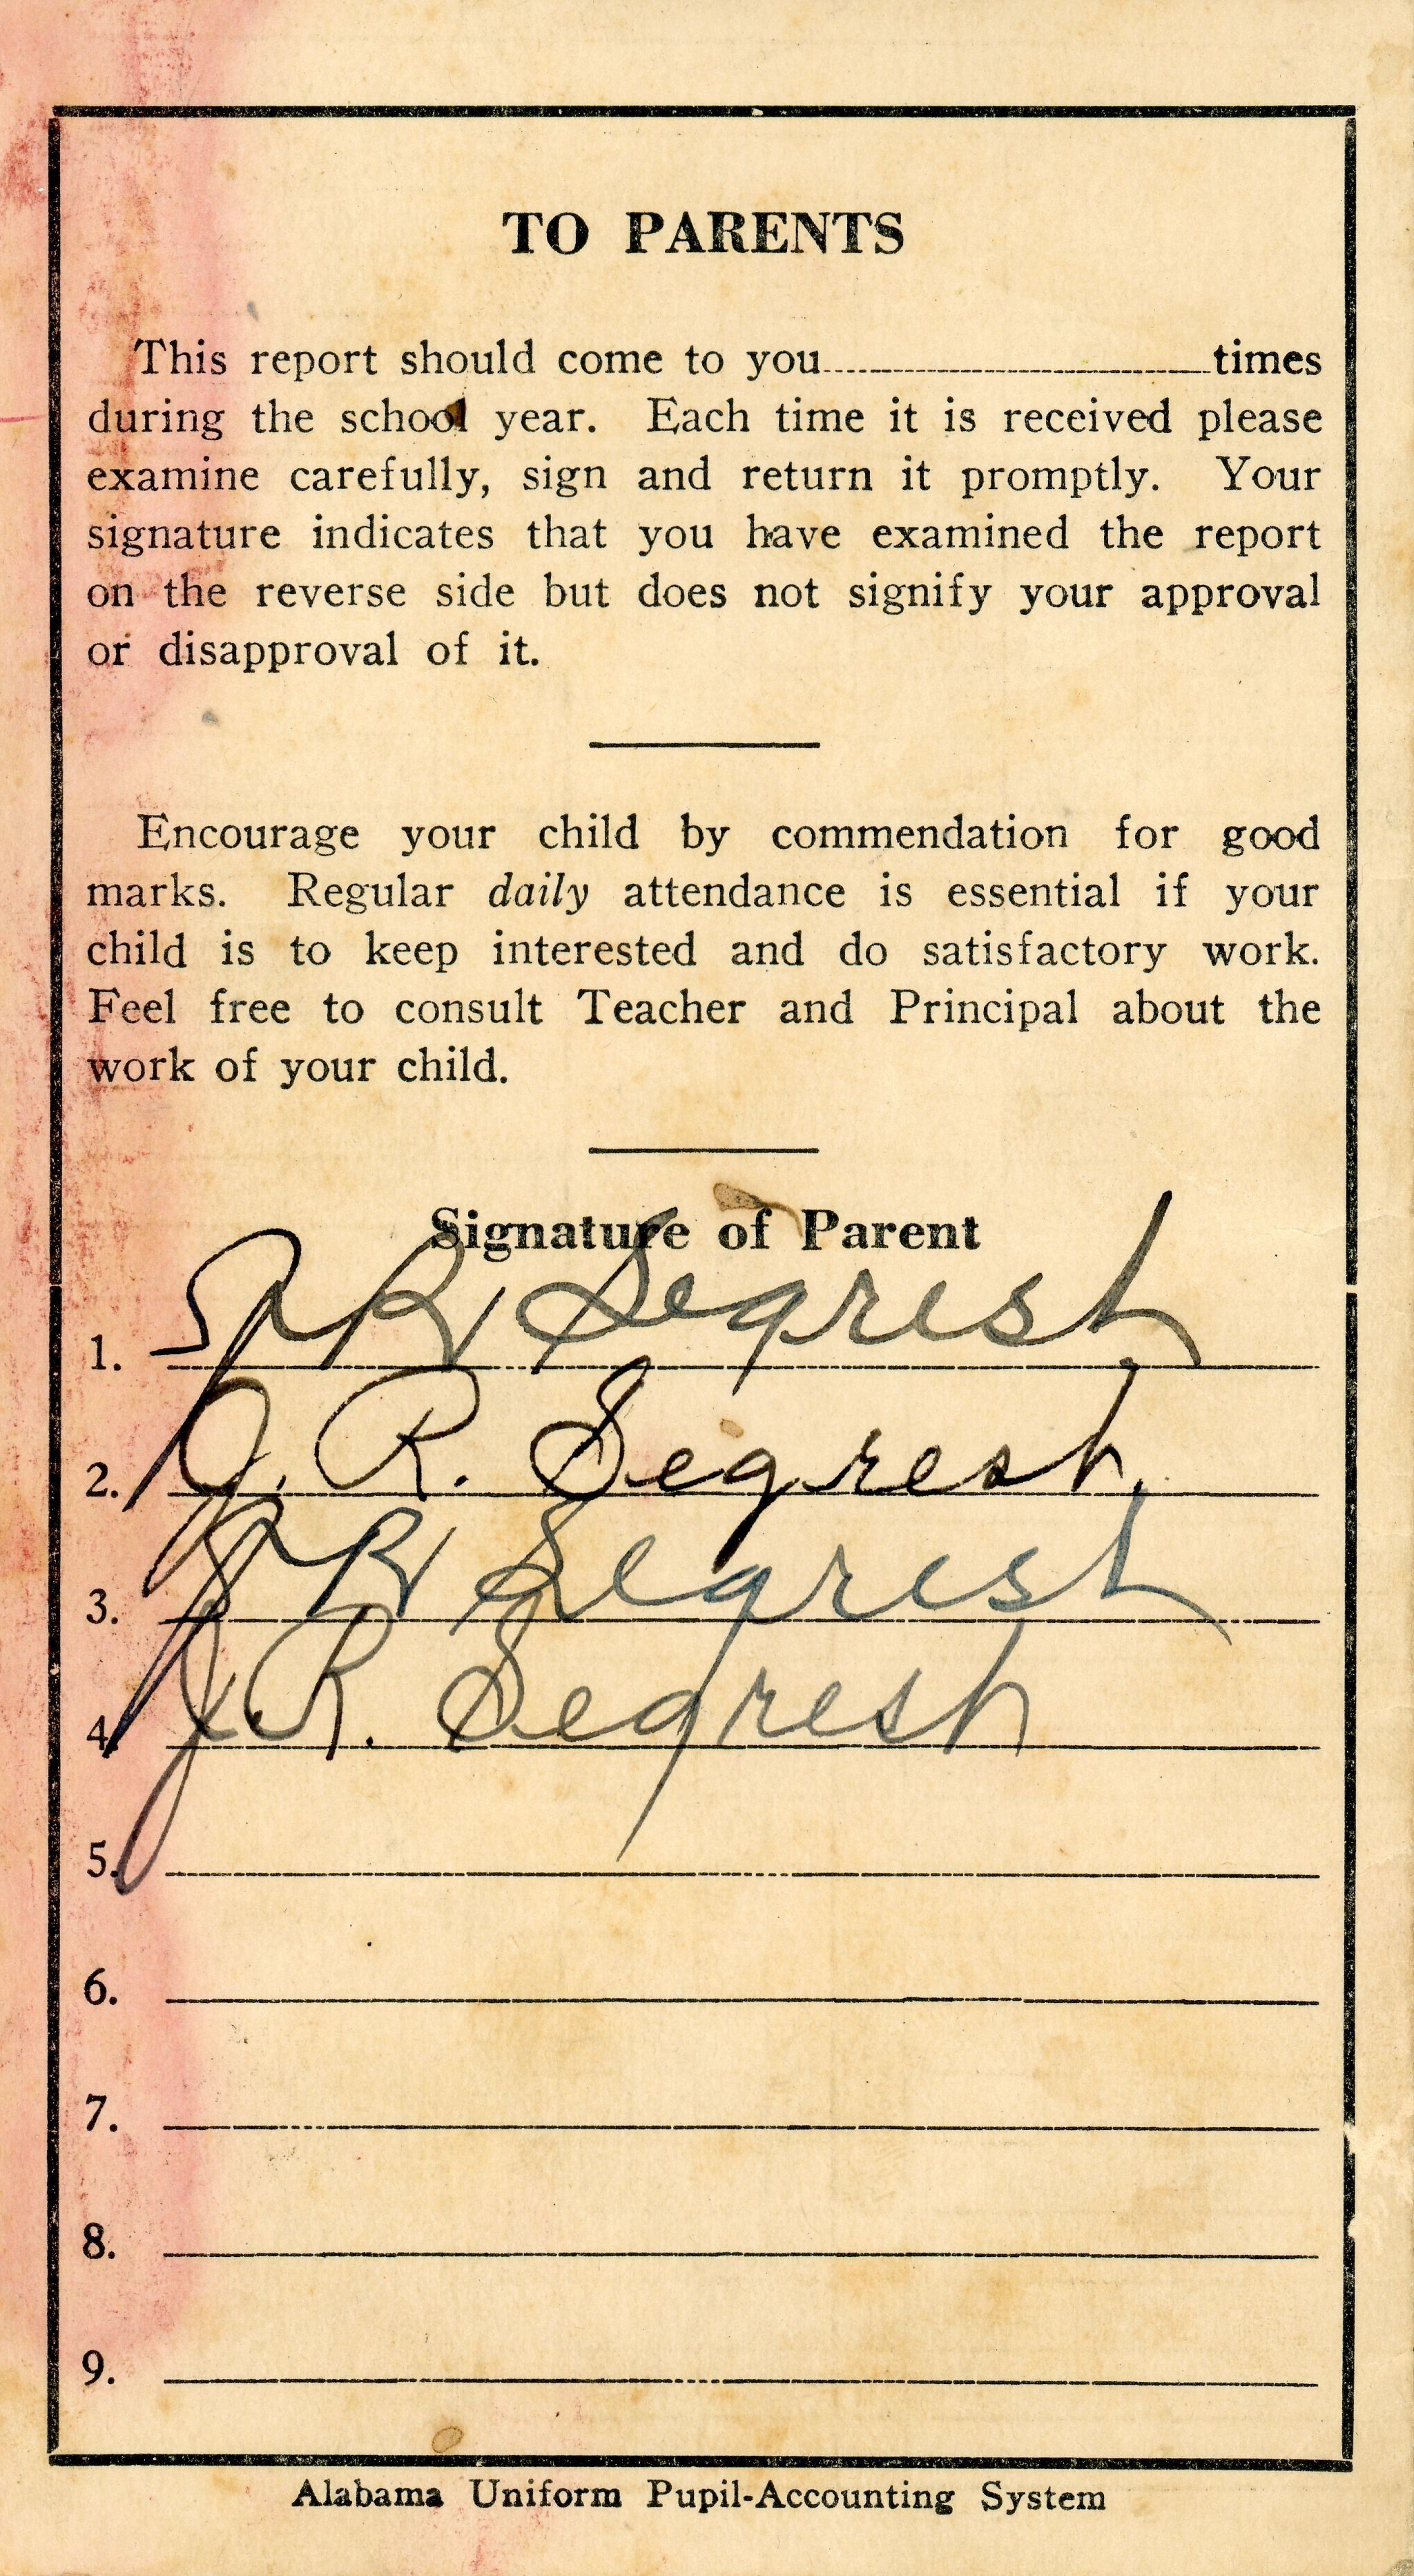 TO PARENTS
This report should come to you........................times
during the school year. Each time it is received please
examine carefully, sign and return it promptly. Your
signature indicates that you have examined the report
on the reverse side but does not signify your approval
or disapproval of it.
Encourage your child by commendation for good
marks. Regular daily attendance is essential if your
child is to keep interested and do satisfactory work.
Feel free to consult Teacher and Principal about the
work of your child.
Signature of Parent
1. J R Segrest
2. J. R. Segrest.
3. J R Segrest
4. J. R. Segrest
5.
6.
7.
8.
9.
Alabama Uniform Pupil-Accounting System